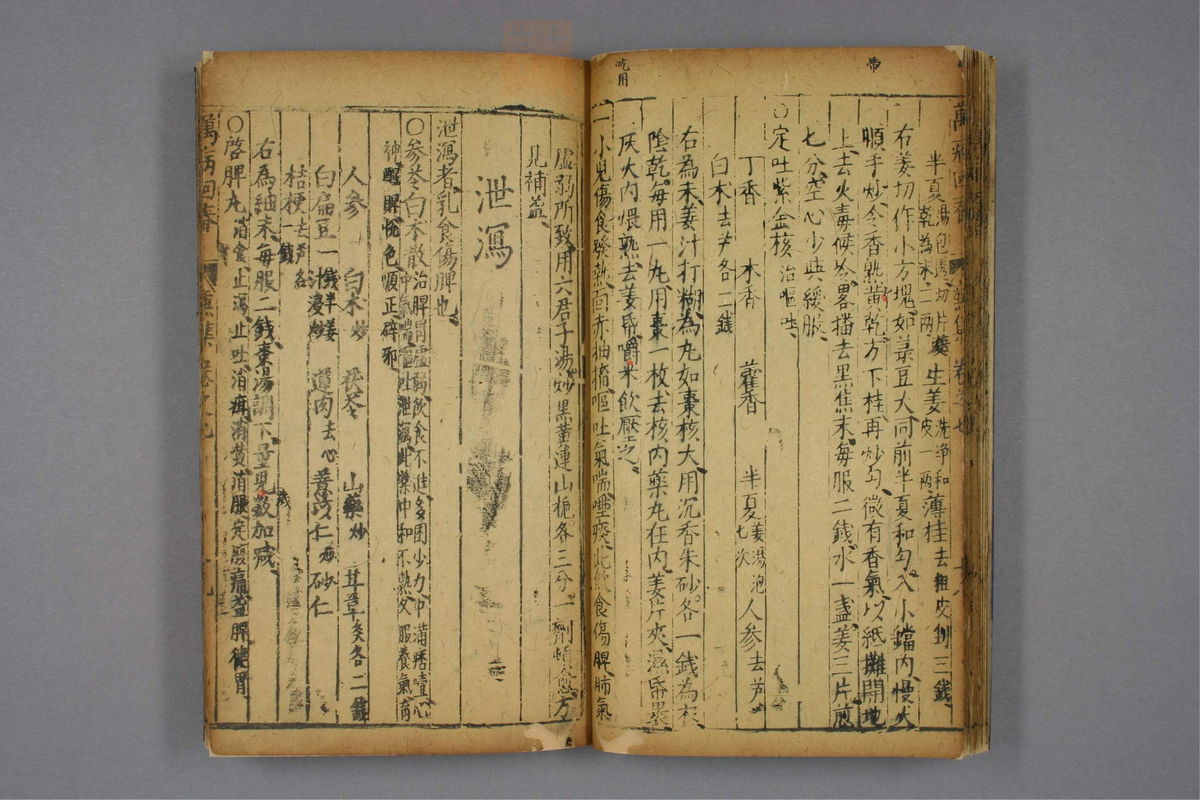 吃用
帶
萬病回春
卷之七
半夏湯泡透切片姜
乾為末二兩
生姜洗净和
皮一兩薄桂去粗皮剉三錢
右姜切作小方塊如菉豆大同前半夏和勻入小鐺內慢火
順手炒令香熟黄乾方下桂再炒勻微有香氣以紙攤開地
上去火毒候冷畧揚去黑焦末每服二錢水一盞姜三片煎
七分空心少與緩服
○定吐紫金核治嘔吐
丁香 木香 藿香 半夏姜湯泡七次 人参去芦
白术去芦各一錢
右為末姜汁打糊為丸如棗核大用沉香朱砂各一錢為衣
陰乾每用一丸用棗一枚去核內藥丸在內姜片夾濕帋裹
灰火內煨熟去姜帋嚼米飲壓之
一小兒傷食發熱面赤抽搐嘔吐氣喘唾痰此飲食傷脾肺氣
虛弱所致用六君子湯炒黑黃連山梔各三分一劑頓愈方
見補益
泄瀉
泄瀉者乳食傷脾也
○参苓白术散治脾胃虛弱飲食不進多困少力中滿痞噎心
冲氣喘嘔吐泄瀉此藥中和不熱久服養氣育
神醒脾悅色順正辟邪
人參 白术炒 茯苓 山藥炒 甘草炙各二錢
白扁豆一錢半姜汁浸炒 蓮肉去心 薏苡仁炒 砂仁
桔梗去芦各一錢
右為細末每服二錢棗湯調下量兒歲數加減
○啓脾丸消食止瀉止吐消疳消黄消脹定腹痛益脾健胃
萬病回春